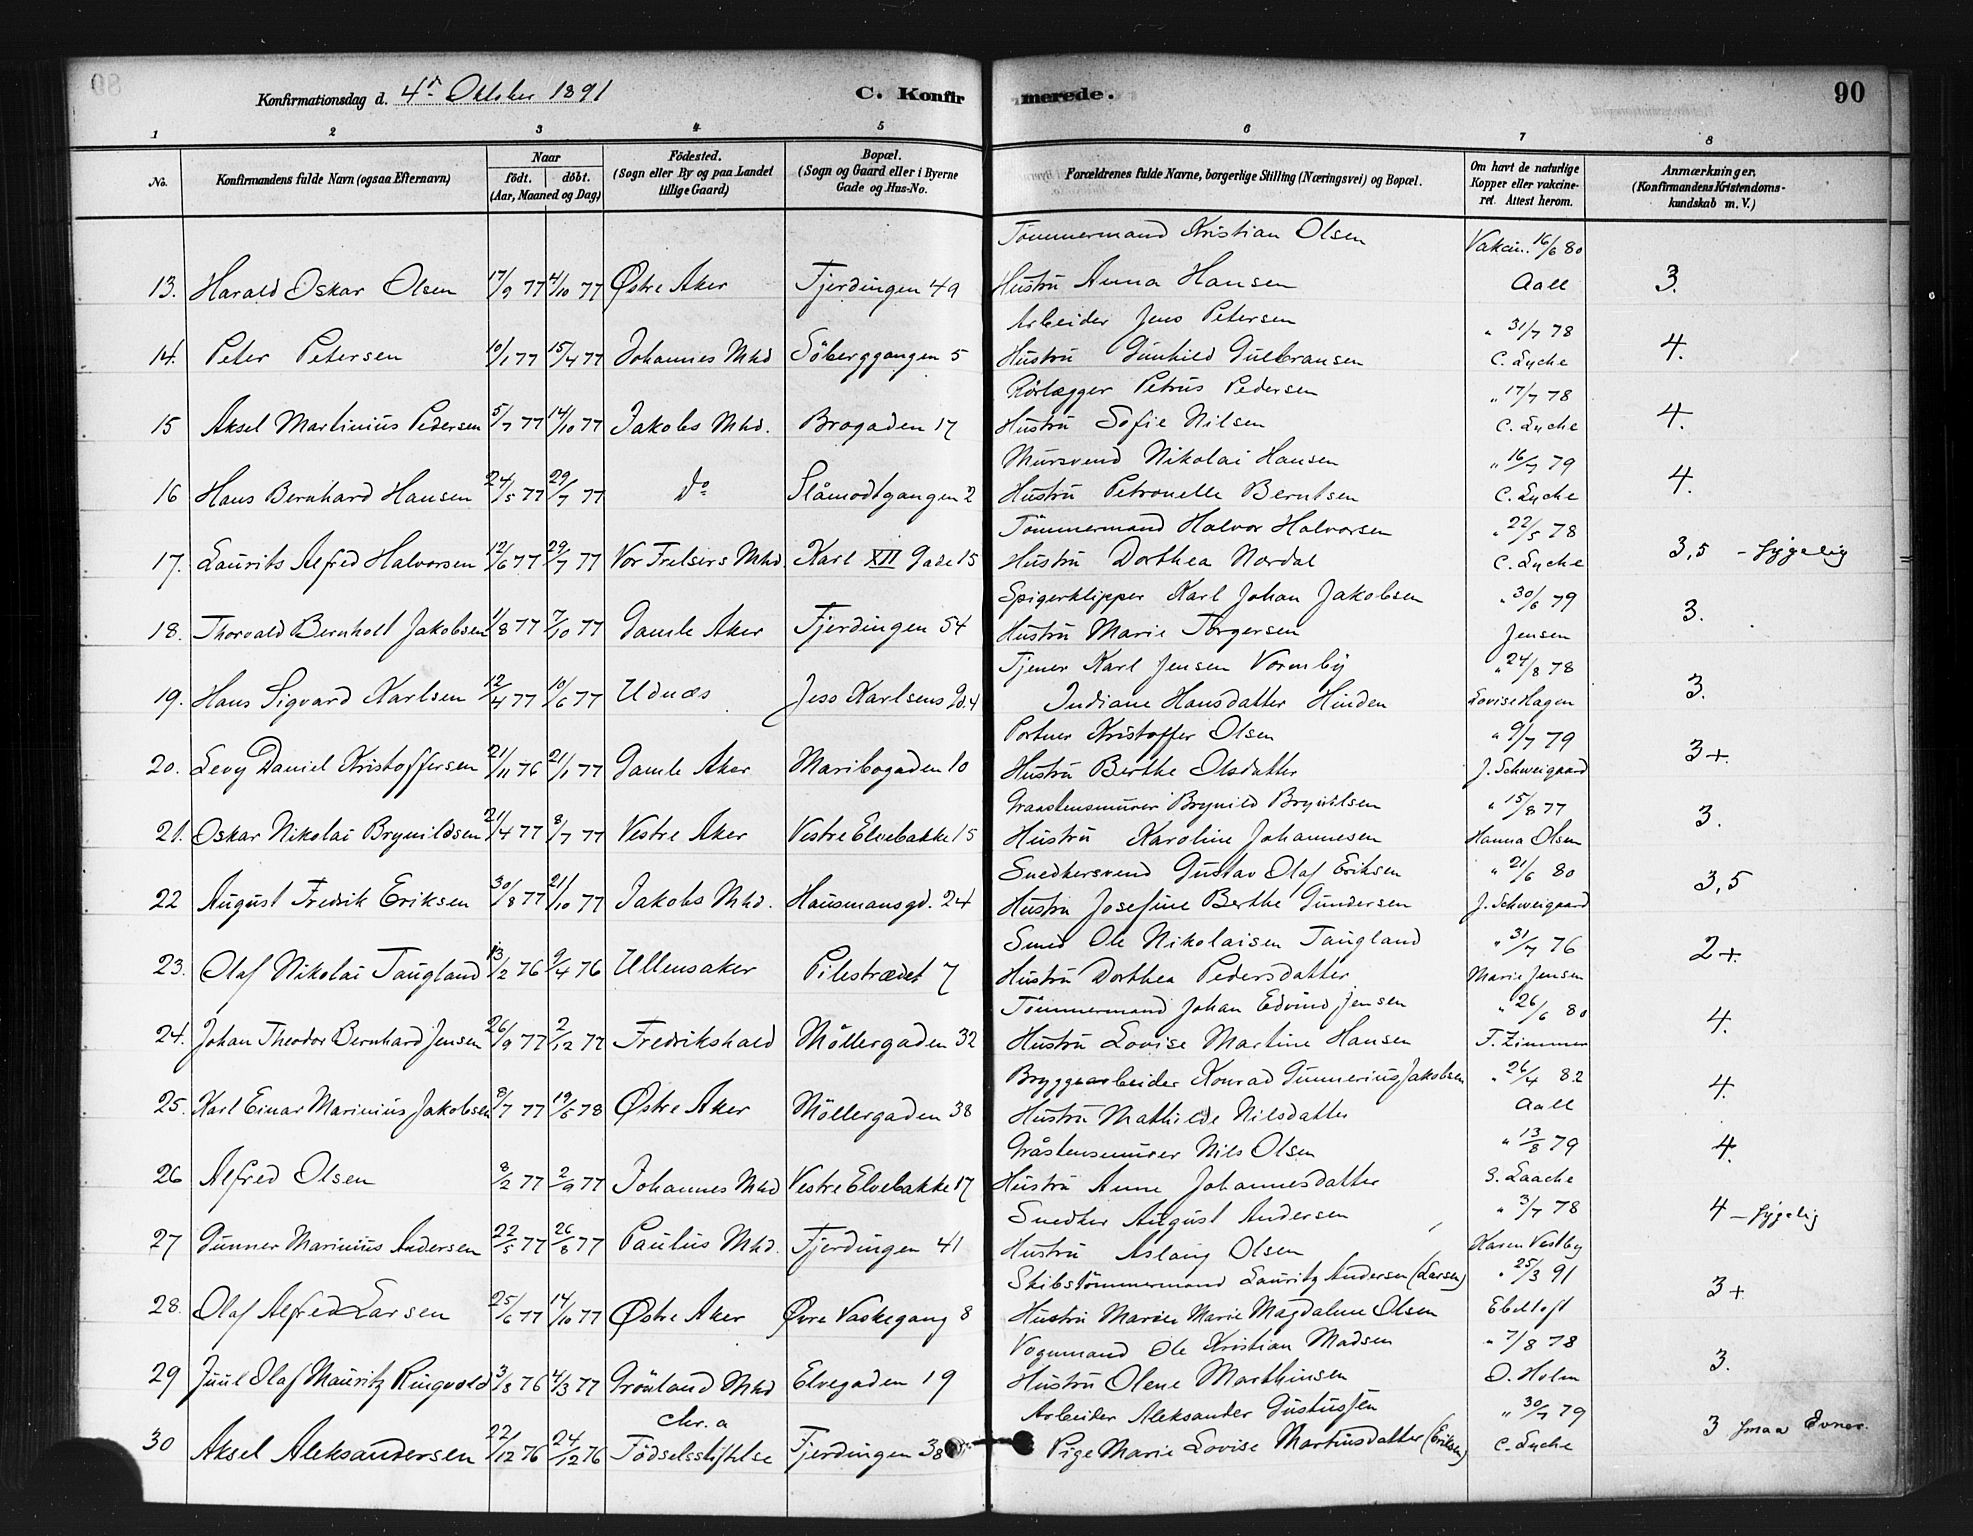 Konfirmationsdag d. 4de Oktober 1891
C. Konfirmerede.
90
1 2 3 4 5 6 7 8
No.
Konfirmandens fulde Navn (ogsaa Efternavn)
Naar
födt. döbt.
(Aar, Maaned og Dag)
Födested.
(Sogn eller By og paa Landet
tillige Gaard)
Bopæl.
(Sogn og Gaard eller i Byerne
Gade og Hus-No.
Forældrenes fulde Navne, borgerlige Stilling (Næringsvei) og Bopæl.
Om havt de naturlige
Kopper eller vakcine-
ret. Attest herom.
Anmærkninger,
(Konfirmandens Kristendoms-
kundskab m. V.)
Tömmermand Kristian Olsen Vakcin. 16/6 80
13. Harald Oskar Olsen 17/9 77 4/10 77 Østre Aker Fjerdingen 49 Hustru Anna Hansen Aall 3.
Arbeider Jens Petersen " 31/7 78
14. Peter Petersen 10/1 77 15/4 77 Johannes Mhd Söberggangen 5 Hustru Gunhild Gulbransen C. Lyche 4.
Rörlægger Petrus Pedersen " 17/7 78
15 Aksel Martinius Pedersen 5/7 77 14/10 77 Jakobs Mhd. Brogaden 17 Hustru Sofie Nilsen C. Lyche 4.
Mursvend Nikolai Hansen " 16/7 79
16 Hans Bernhard Hansen 24/5 77 29/7 77 do Slåmodtgangen 2 Hustru Petronelle Berntsen C. Lyche 4.
Tömmermand Halvor Halvorsen " 22/5 78
17. Laurits Alfred Halvorsen 12/6 77 29/7 77 Vor Frelsers Mhd. Karl XII Gade 15 Hustru Dorthea Nordal C. Lyche 3,5 - sygelig
Spigerklipper Karl Johan Jakobsen " 30/6 79
18. Thorvald Bernholt Jakobsen 1/8 77 7/10 77 Gamle Aker Fjerdingen 54 Hustru Marie Torgersen Jensen 3.
Tjener Karl Jensen Vormby " 24/8 78
19. Hans Sigvard Karlsen 12/4 77 10/6 77 Udnæs Jess Karlsens Gd. 4 Indiane Hansdatter Hinden Lovise Hagen 3.
Portner Kristoffer Olsen " 9/7 79
20. Levy Daniel Kristoffersen 21/11 76 21/1 77 Gamle Aker Maribogaden 10 Hustru Berthe Olsdatter J. Schweigaard 3+
Graastensmurer Brynild Brynilsen " 15/8 77
21. Oskar Nikolai Brynildsen 21/4 77 8/7 77 Vestre Aker Vestre Elvebakke 15 Hustru Karoline Johannesen Hanna Olsen 3.
Snedkersvend Gustav Olaf Eriksen " 21/6 80
22 August Fredrik Eriksen 30/8 77 21/10 77 Jakobs Mhd. Hausmansgd. 24 Hustru Josefine Berthe Gundersen J. Schweigaard 3,5
Smed Ole Nikolaisen Taugland " 31/7 76
23. Olaf Nikolai Taugland 13/2 76 9/4 76 Ullensaker Pilestrædet 7 Hustru Dorthea Pedersdatter Marie Jensen 2+
Tömmermand Johan Edvind Jensen " 26/6 80
24. Johan Theodor Bernhard Jensen 26/9 77 2/12 77 Fredrikshald Möllergaden 32 Hustru Lovise Martine Hansen F. Zimmer 4.
Bryggearbeider Konrad Gunnerius Jakobsen " 26/4 82
25. Karl Einar Marinius Jakobsen 8/7 77 19/5 78 Østre Aker Möllergaden 38 Hustru Mathilde Nilsdatter Aall 4.
Gråstensmurer Nils Olsen " 13/8 79
26 Alfred Olsen 8/2 77 2/9 77 Johannes Mhd Vestre Elvebakke 17 Hustru Anne Johannesdatter S. Laache 4.
Snedker August Andersen " 3/7 78
27 Gunner Marinius Andersen 22/5 77 26/8 77 Paulus Mhd. Fjerdingen 41 Hustru Aslaug Olsen Karen Vestby 4 - sygelig
Skibstömmermand Lauritz Andersen (Larsen) " 25/3 91
28. Olaf Alfred Larsen 25/6 77 14/10 77 Østre Aker Øvre Vaskegang 8 Hustru Maren Marie Magdalene Olsen Ebeltoft 3+
Vognmand Ole Kristian Madsen " 7/8 78
29 Juul Olaf Mauritz Ringvold 3/8 76 4/3 77 Grönland Mhd Elvegaden 19 Hustru Olene Marthinsen O. Holm 3.
Chr.a Arbeider Aleksander Gustusen " 30/7 79
30 Aksel Aleksandersen 22/12 76 24/12 76 Födselsstiftelse Fjerdingen 38 Pige Marie Lovise Martinsdatter (Eriksen) C. Lyche 3 smaa Evner.